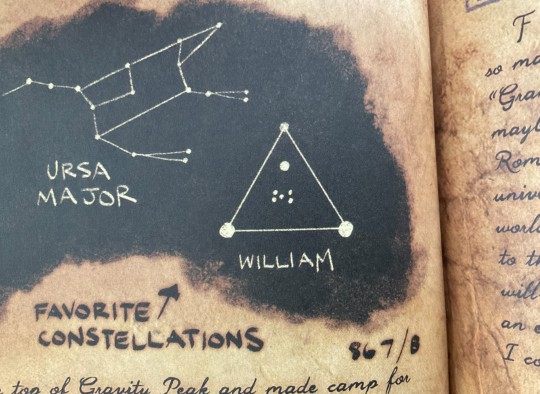 URSA
MAJOR
WILLIAM
FAVORITE
CONSTELLATIONS
867/B
top of Gravity Peak and made camp for
F
so
"Gra
mayb
Rom
univ
world
to th
will
an
I co